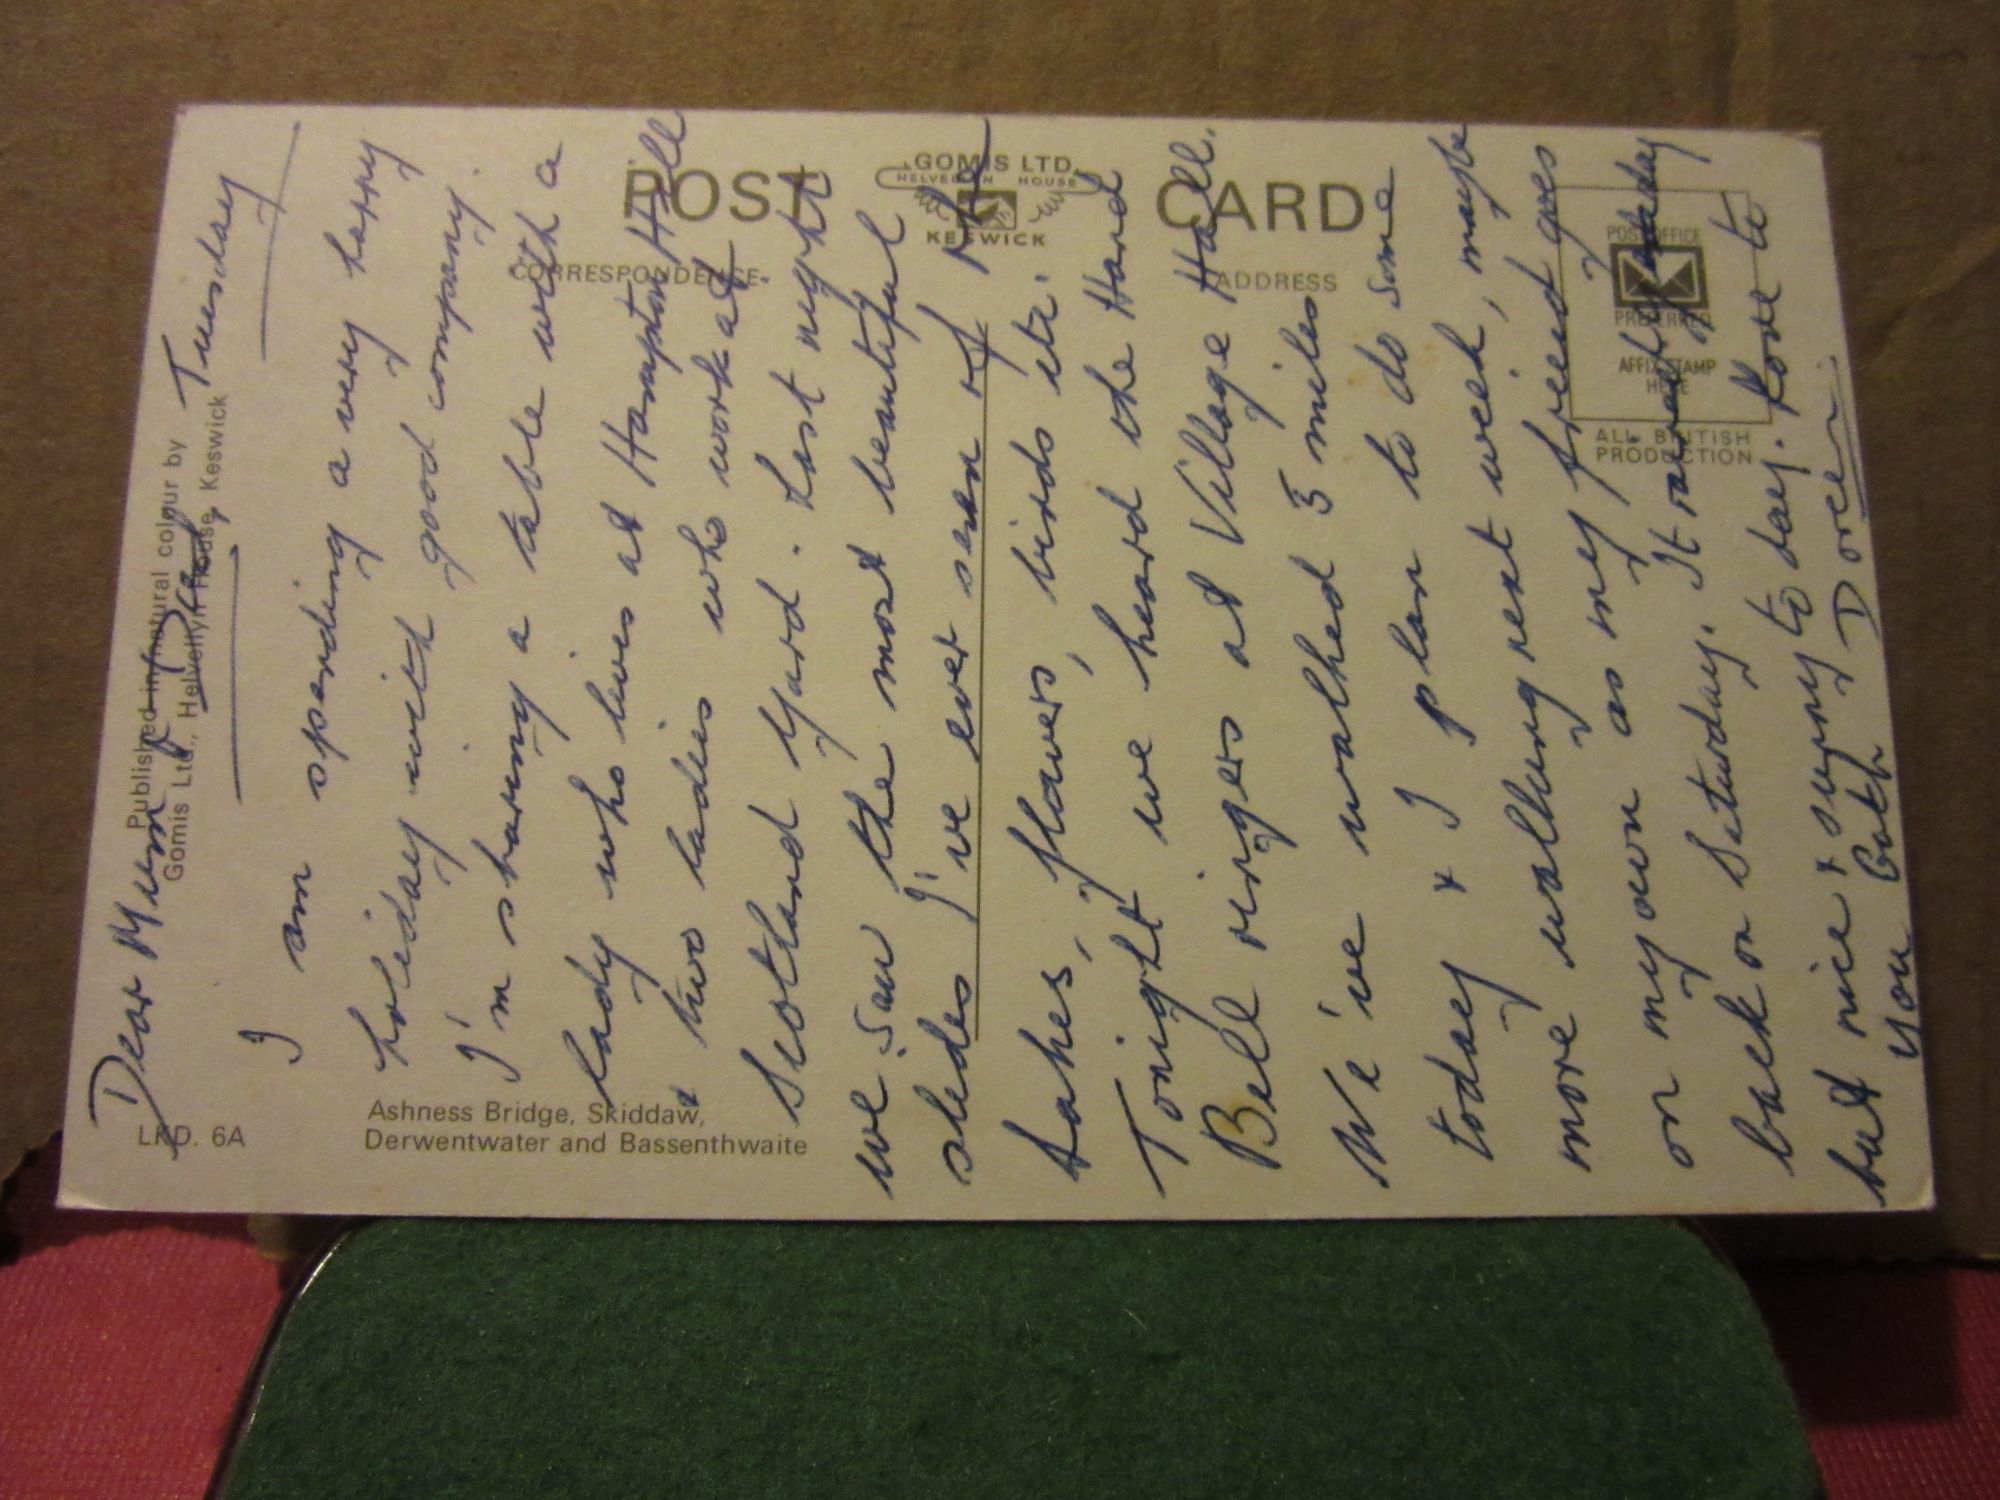 POST CARD
GOMIS LTD.
HELVELLYN HOUSE
KESWICK
CORRESPONDENCE
ADDRESS
POST OFFICE
PREFERRED
AFFIX STAMP
HERE
ALL BRITISH
PRODUCTION
Published in natural colour by
Gomis Ltd., Helvellyn House, Keswick
LKD. 6A
Ashness Bridge, Skiddaw,
Derwentwater and Bassenthwaite
Tuesday
Dear Mum & Dad,
I am spending a very happy
holiday with good company.
I'm sharing a table with a
lady who lives at Hampton Hill
& two ladies who work at
Scotland Yard. Last night
we saw the most beautiful
slides I've ever seen of the
Lakes, flowers, birds etc.
Tonight we heard the Hand
Bell ringers at Village Hall.
We've walked 5 miles
today & I plan to do some
more walking next week, maybe
on my own as my friend goes
back on Saturday. It rained yesterday
but nice & sunny to day. Love to
you both Doreen.